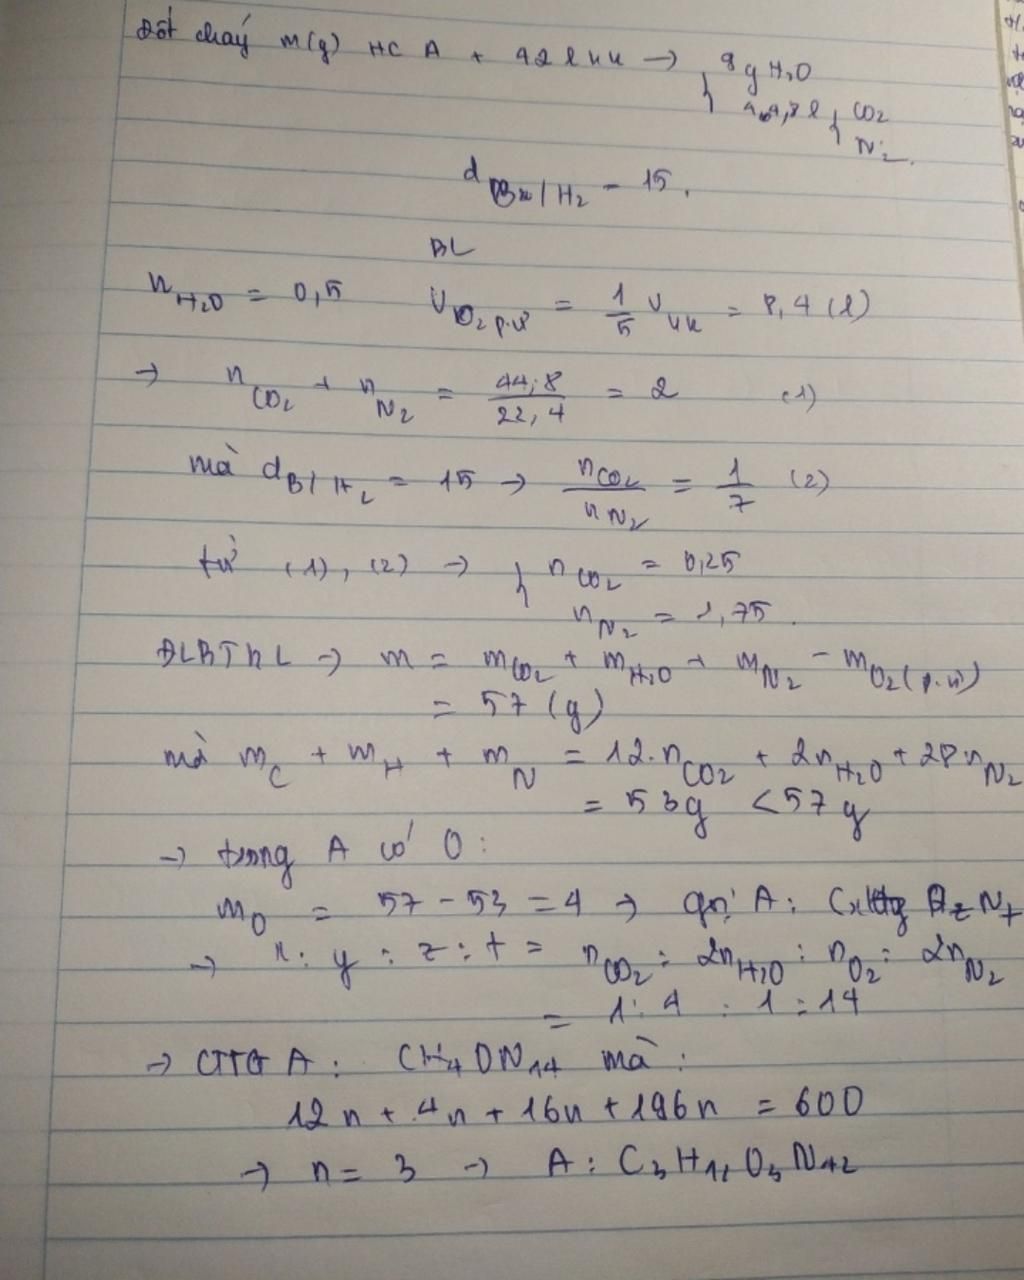 Đốt cháy m(g) HC A + 42 l kk → { 9g H2O
44,8 l { CO2
N2.
d B/H2 = 15.
BL
nH2O = 0,5 VO2 p.ứ = 1/5 Vkk = 8,4 (l)
→ nCO2 + nN2 = 44,8/22,4 = 2 (1)
mà dB/H2 = 15 → nCO2/nN2 = 1/7 (2)
từ (1), (2) → { nCO2 = 0,25
nN2 = 1,75.
ĐLBTKL → m = mCO2 + mH2O + mN2 - mO2(p.ứ)
= 57 (g)
mà mC + mH + mN = 12.nCO2 + 2nH2O + 28.nN2
= 53g < 57g
→ trong A có O:
mO = 57 - 53 = 4 → gọi A: CxHyOzNt
→ x : y : z : t = nCO2 : 2nH2O : nO2 : 2nN2
= 1 : 4 : 1 : 14
→ CTĐG A: CH4ON14 mà:
12n + 4n + 16n + 196n = 600
→ n = 3 → A: C3H12O3N42